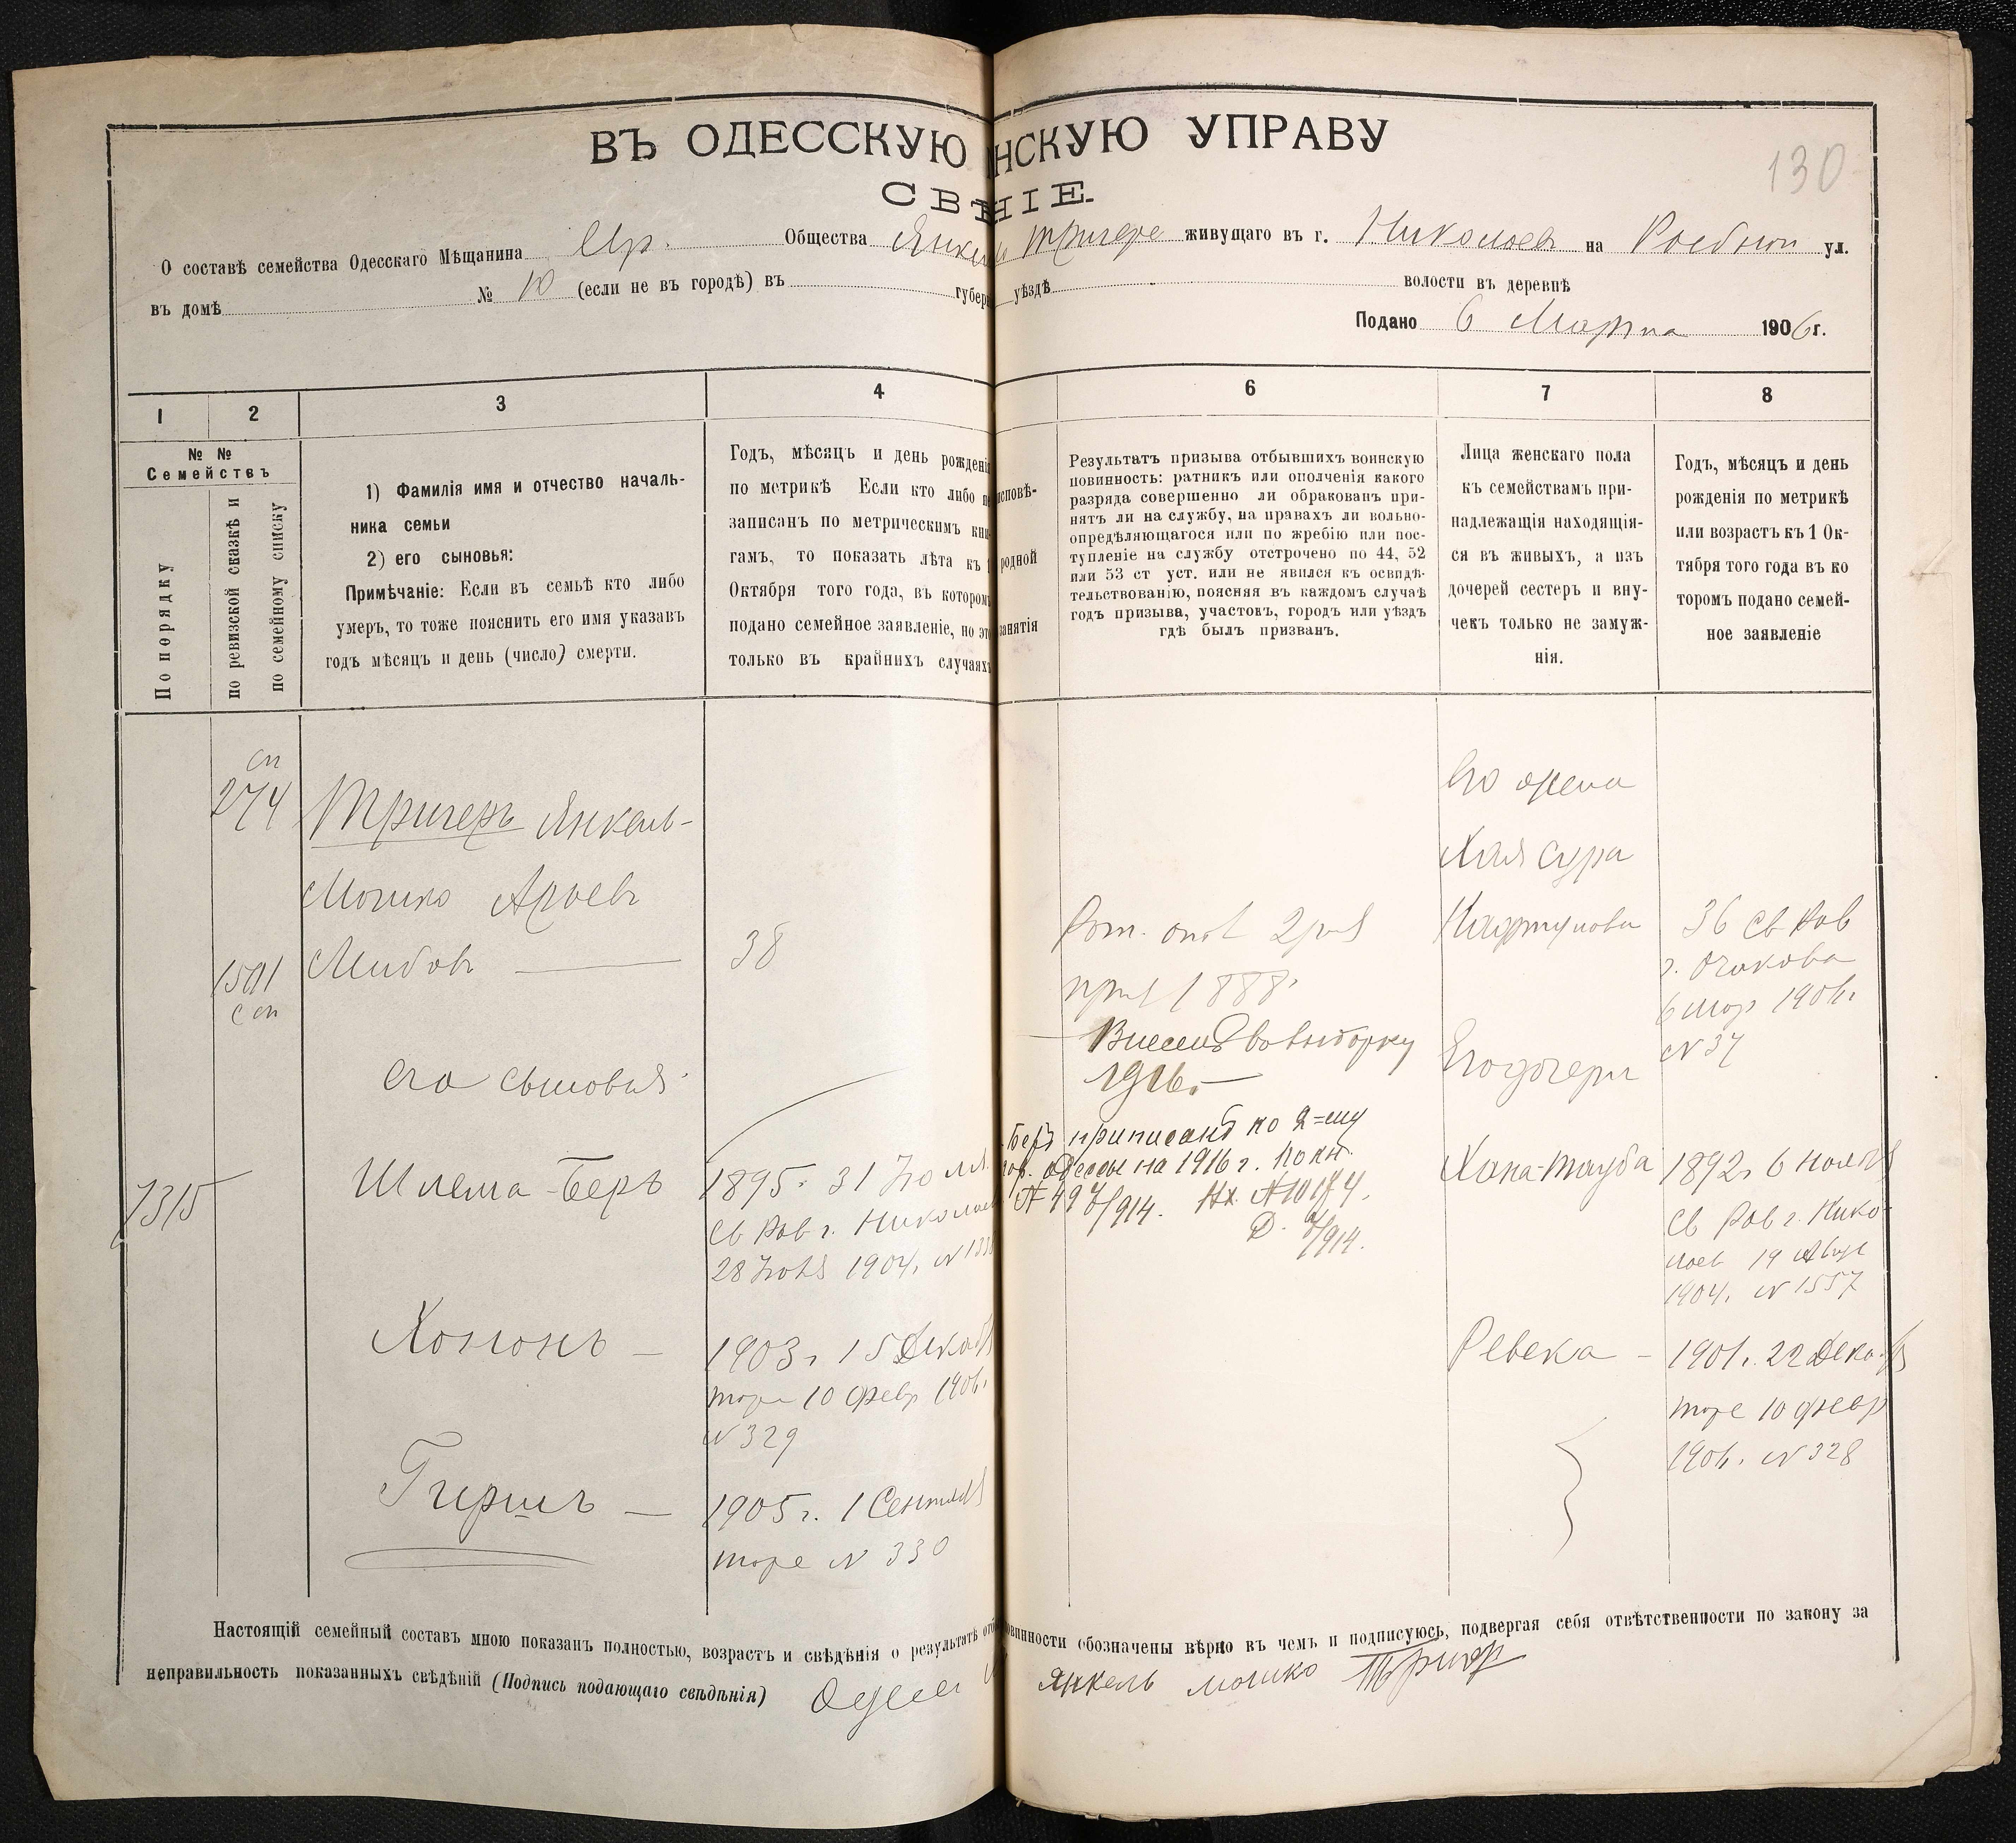 ВЪ ОДЕССКУЮ НСКУЮ УПРАВУ
СВѢНІЕ.
130
О составѣ семейства Одесскаго Мѣщанина Евр. Общества Янкель Тригеръ живущаго въ г. Николаевъ на ул.
въ домѣ № 10 (если не въ городѣ) въ губер уѣздѣ волости въ деревнѣ
Подано 6 Марта 1906 г.
1 2 3 4 6 7 8
№ №
Семействъ
По порядку
по ревизской сказкѣ и
по семейному списку
1) Фамилія имя и отчество началь-
ника семьи
2) его сыновья:
Примѣчаніе: Если въ семьѣ кто либо
умеръ, то тоже пояснить его имя указавъ
годъ мѣсяцъ и день (число) смерти.
Годъ, мѣсяцъ и день рожденія
по метрикѣ Если кто либо не
записанъ по метрическимъ кни-
гамъ, то показать лѣта къ 1
Октября того года, въ которомъ
подано семейное заявленіе, но это
только въ крайнихъ случаяхъ
исповѣ-
родной
занятія
Результатъ призыва отбывшихъ воинскую
повинность: ратникъ или ополченія какого
разряда совершенно ли обракованъ при-
нятъ ли на службу, на правахъ ли вольно-
опредѣляющагося или по жребію или пос-
тупленіе на службу отстрочено по 44, 52
или 53 ст уст. или не явился къ освидѣ-
тельствованію, поясняя въ каждомъ случаѣ
годъ призыва, участокъ, городъ или уѣздъ
гдѣ былъ призванъ.
Лица женскаго пола
къ семействамъ при-
надлежащія находящія-
ся въ живыхъ, а изъ
дочерей сестеръ и вну-
чекъ только не замуж-
нія.
Годъ, мѣсяцъ и день
рожденія по метрикѣ
или возрастъ къ 1 Ок-
тября того года въ ко
торомъ подано семей-
ное заявленіе
сп
274
Тригеръ Янкель-
Мошко Арьевъ
Лейбовъ
38
сп
Рат. опол 2 раз
приз 1888.
Внесенъ во выборку
1916.
его сыновья
7315
Шлема-Беръ
1895. 31 Іюля
Св Рав г. Николаев
28 Іюля 1904. N
Беръ приписанъ ко 2=му
Одессы на 1916 г. по кн.
/914. Вх.
/914.
Хононъ —
1903 г. 15 Декаб
тоже 10 февр 1906.
N 329
Гиршъ —
1905 г. 1 Сентяб
тоже N 330
Его жена
Хая Сура
Нафтулова
36 Св Рав
г. Очакова
6 мар 1906 г.
N 37
Его дочери
Хана-Тауба
1892 г. 6 Нояб
Св Рав г. Нико-
лаев 19 Авг
1904. N 1557
Ревека —
1901 г. 22 Декаб
тоже 10 февр
1906. N 328
Настоящій семейный составъ мною показанъ полностью, возрастъ и свѣдѣнія о результатѣ отб овинности обозначены вѣрно въ чемъ и подписуюсь, подвергая себя отвѣтственности по закону за
неправильность показанныхъ свѣдѣній (Подпись подающаго свѣдѣнія) Янкель мошко Тригер